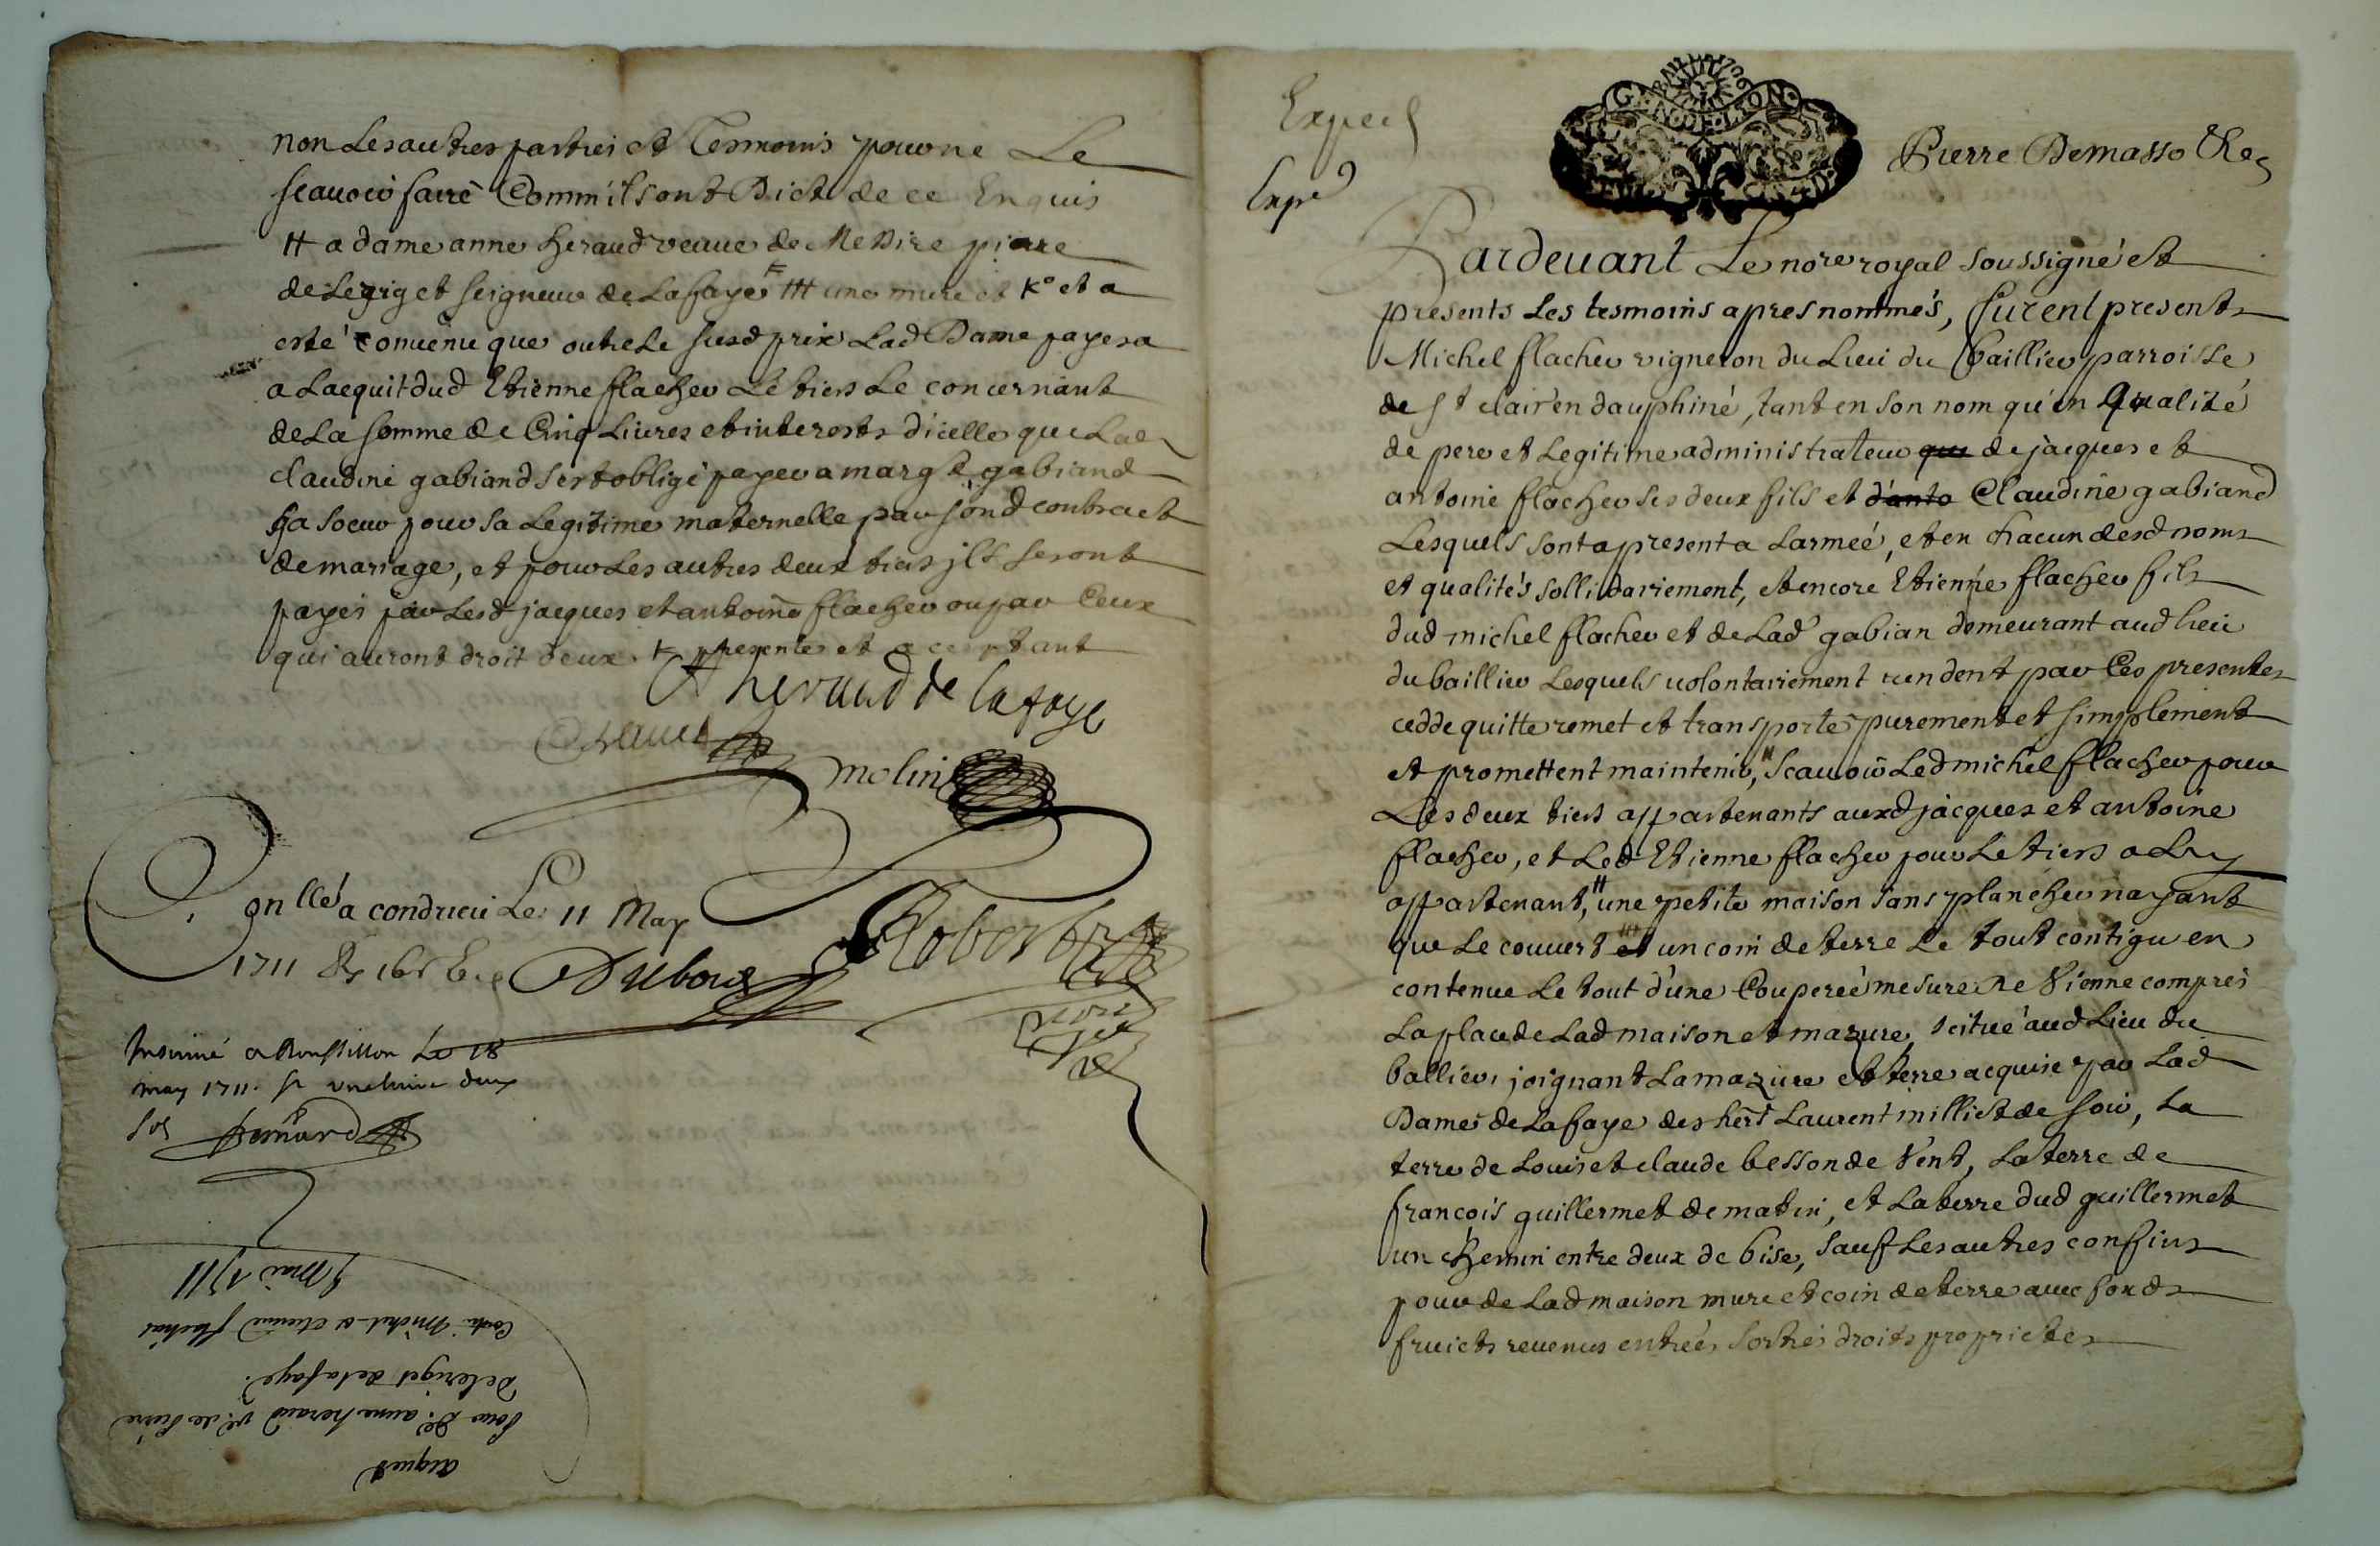 non Les autres parties et Tesmoins pour ne Le
scauoir faire Comm'ils ont Dict de ce Enquis
# a dame anne heraud veuue de Messire pierre
de Leriget seigneur de Lafaye ## une mure et K° et a
esté conuenu que outre Le susd prix Lad Dame payera
a Lacquit dud Etienne flacher Le tiers Le concernant
de La somme de Cinq Liures et interests d'icelle que Lad
Claudine gabiand s'est obligé payer a margte gabiand
sa soeur pour sa Legitime maternelle par son d contract
de mariage, et pour Les autres deux tiers jls seront
payés par Lesd jacques et antoine flacher ou par Ceux
qui auront droit d'eux K presente et acceptant
A heraud de lafaye
molin
Conllé a condrieu Le 11 May
1711 Dubois
Robert
Insinué a Roussillon Le 18
may 1711. une liure deux
sols
acquet
pour De anne heraud ve de pierre
de leriget de lafaye.
Contre Michel et etienne flachat
9 Mai 1711
Exped
Expé
GENERALITE DE LYON
Pierre Demasso
Pardeuant Le nore royal soussigné et
presents Les tesmoins apres nommés, furent presents
Michel flacher vigneron du Lieu du baillier parroisse
de St clair en dauphiné, tant en son nom qu'en qualité
de pere et Legitime administrateur que de jacques et
antoine flacher ses deux fils et d'anto Claudine gabiand
Lesquels sont a present a Larmeé, et en chacun desd noms
et qualités sollidairement, et encore Etienne flacher fils
dud michel flacher et de Lad gabian demeurant aud Lieu
du baillier Lesquels volontairement vendent par Ces presentes
cedde quitte remet et transporte purement et simplement
et promettent maintenir, # Scauoir Led michel flacher pour
Les deux tiers appartenants auxd jacques et antoine
flacher, et Led Etienne flacher pour Le tiers a Luy
appartenant, # une petite maison sans plancher nayant
que Le couuert ## et un coin de terre Le tout contigu en
contenue Le tout d'une Couperée mesure de Vienne compris
La place de Lad maison et mazure, scitué aud Lieu du
ballier, joignant La mazure et terre acquise par Lad
Dame de Lafaye des hers Laurent milliet de soir, La
terre de Louis et claude besson de Vent, La terre de
francois guillermet de matin, et La terre dud guillermet
un chemin entre deux de bise, sauf Les autres confins
pour de Lad maison mure et coin de terre auec fonds
fruicts reuenus entrées sorties droits proprietes